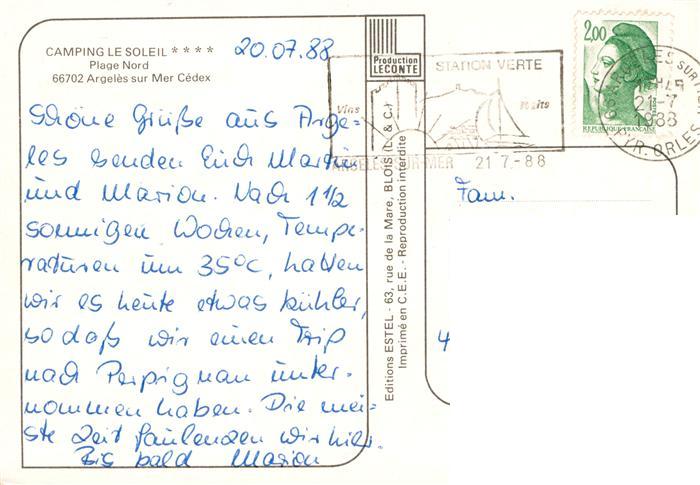 CAMPING LE SOLEIL ****
Plage Nord
66702 Argelès sur Mer Cédex
20.07.88
Schöne Grüße aus Arge-
les senden Euch Martin
und Marion. Nach 1 1/2
sonnigen Wochen, Tempe-
raturen um 35°C, hatten
wir es heute etwas kühler,
so daß wir einen Trip
nach Perpignan unter-
nommen haben. Die mei-
ste Zeit faulenzen wir hier.
Bis bald Marion
Production
LECONTE
Editions ESTEL - 63, rue de la Mare, BLOIS (L. & C.)
Imprimé en C.E.E. - Reproduction interdite
STATION VERTE
Vins
Fruits
ARGELES-SUR-MER 21-7-88
2,00
REPUBLIQUE FRANÇAISE
21-7
1988
PYR. ORLES
Fam.
4